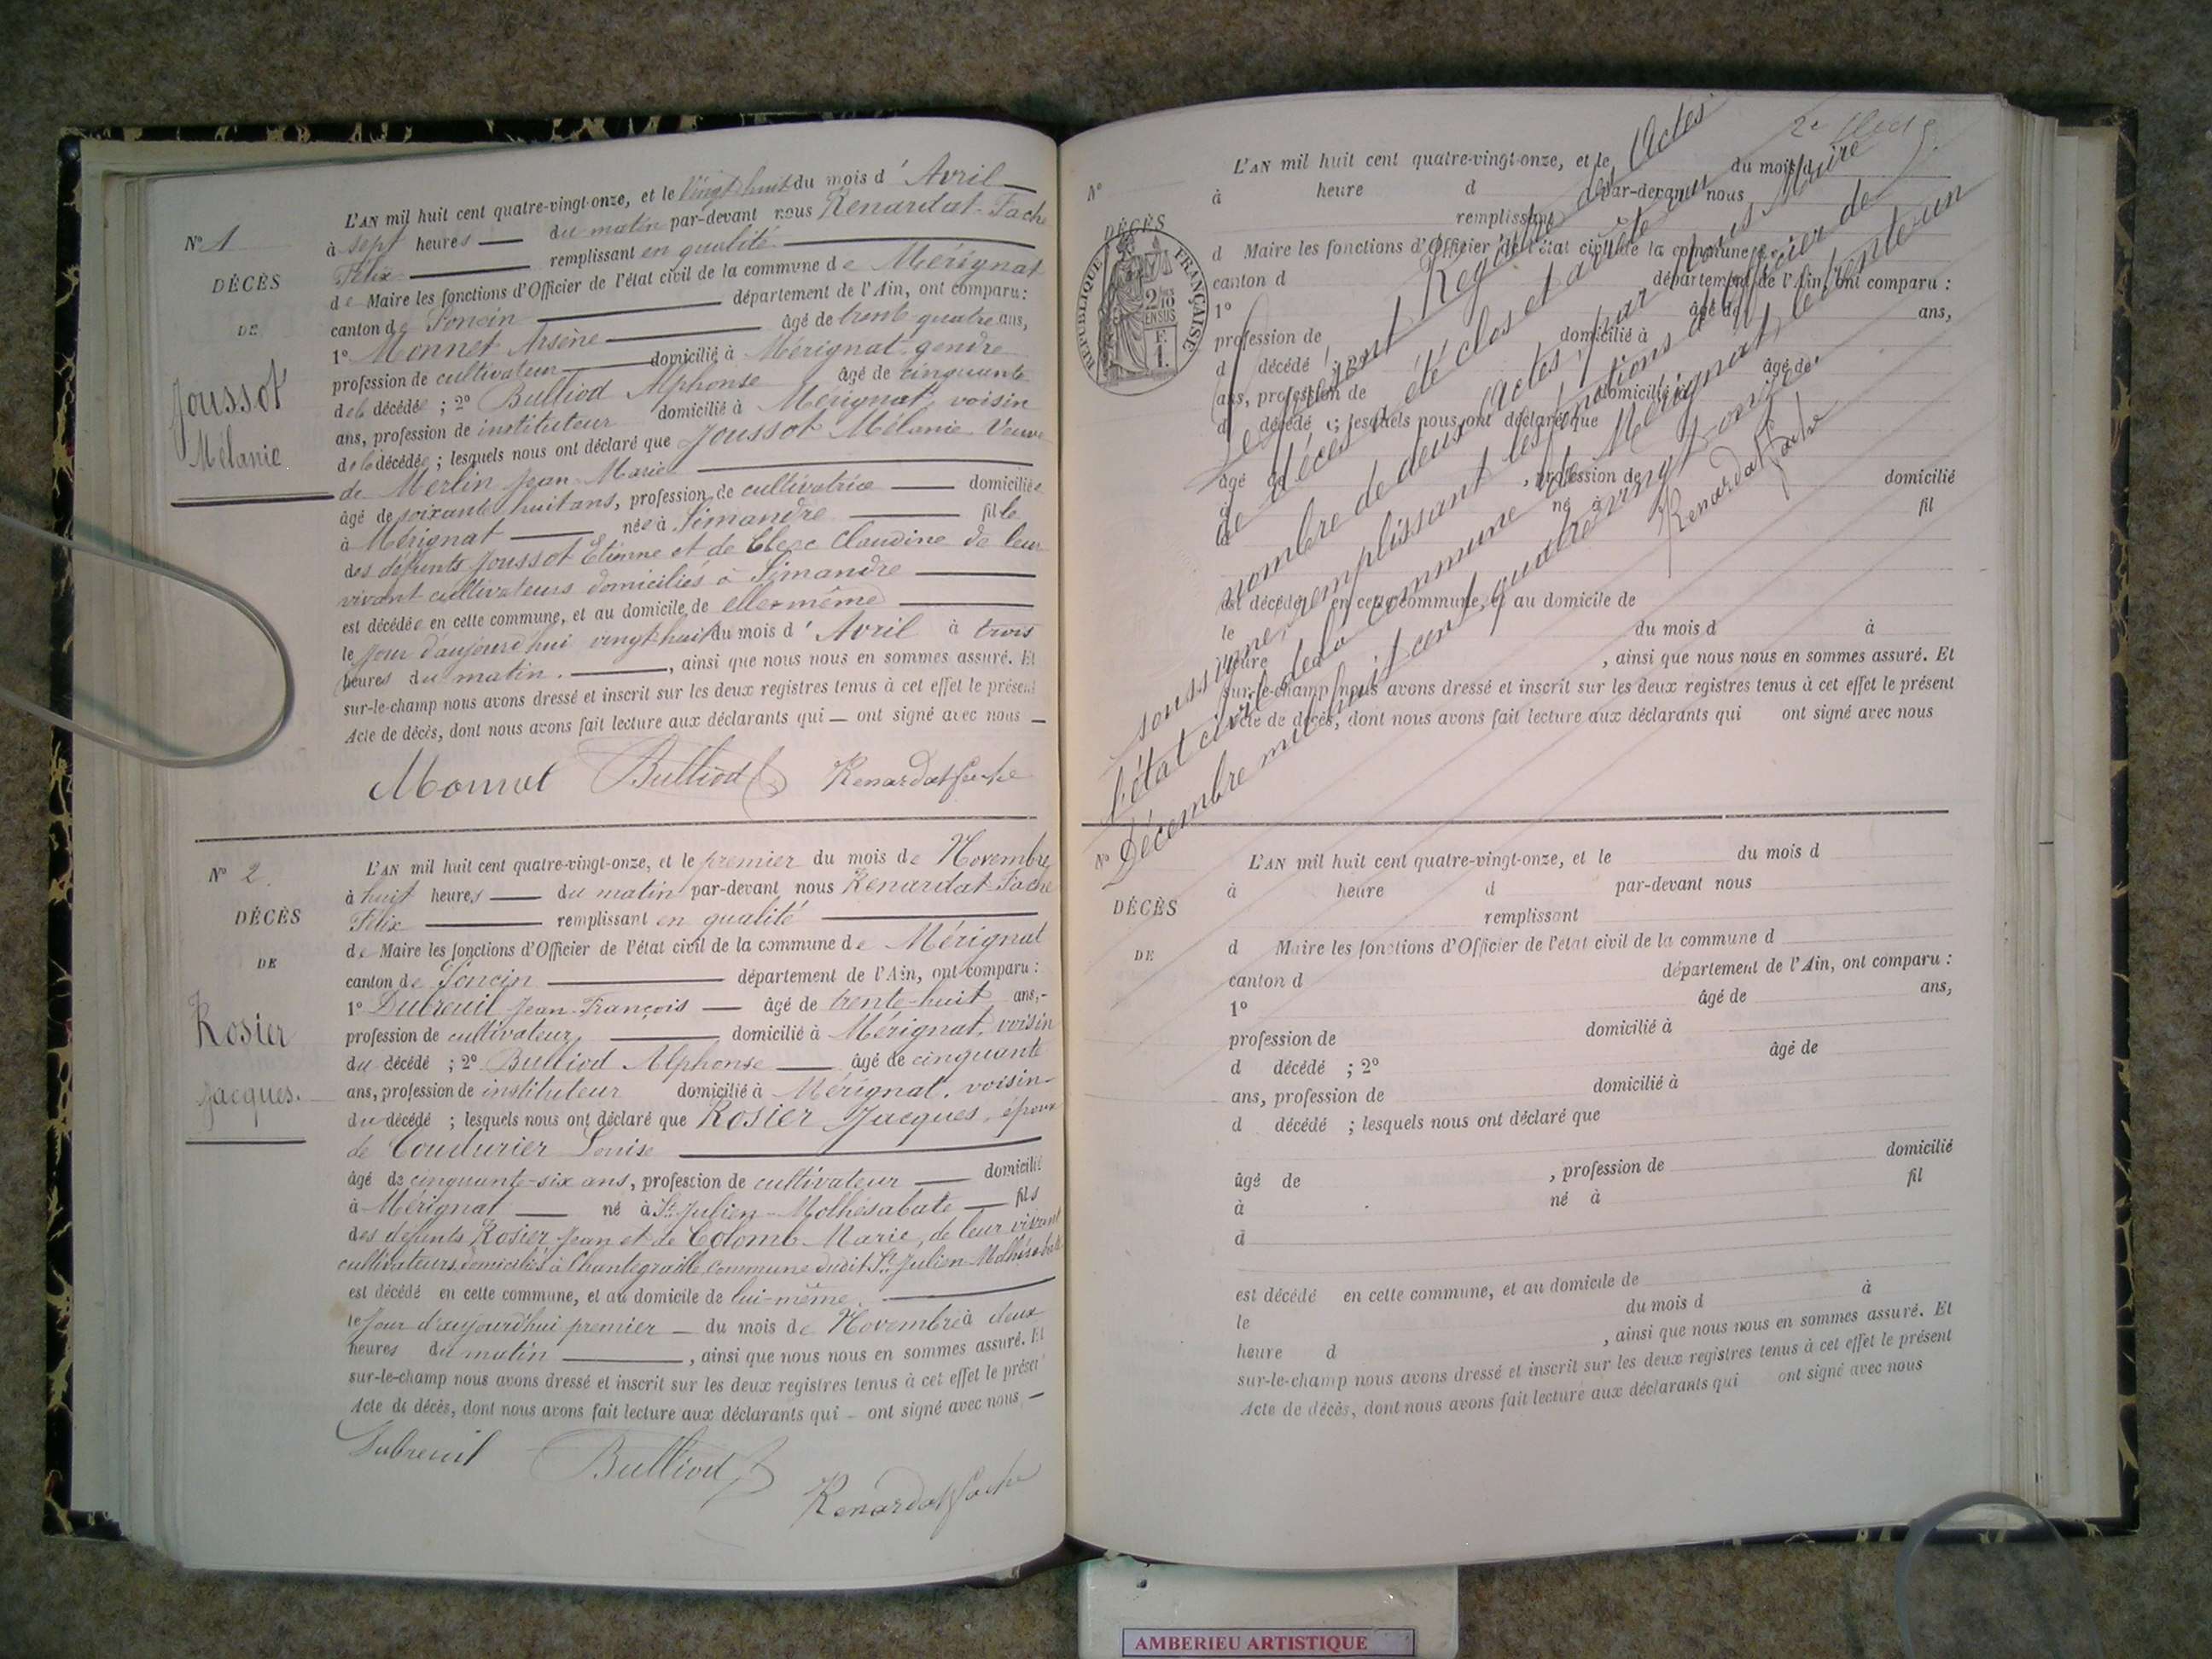 N° 1
DÉCÈS
DE
Joussot
Mélanie
L'AN mil huit cent quatre-vingt-onze, et le vingt-huit du mois d' Avril
à sept heures du matin par-devant nous Renardat-Fache
Félix remplissant en qualité
de Maire les fonctions d'Officier de l'état civil de la commune de Mérignat
canton de Poncin département de l'Ain, ont comparu :
1° Monnet Arsène âgé de trente-quatre ans,
profession de cultivateur domicilié à Mérignat, gendre
de la décédée ; 2° Bulliod Alphonse âgé de cinquante
ans, profession de instituteur domicilié à Mérignat, voisin
de la décédée ; lesquels nous ont déclaré que Joussot Mélanie Veuve
de Merlin Jean-Marie
âgé de soixante-huit ans, profession de cultivatrice domiciliée
à Mérignat née à Simandre fille
des défunts Joussot Etienne et de Clerc Claudine de leur
vivant cultivateurs domiciliés à Simandre
est décédée en cette commune, et au domicile de elle-même
le jour d'aujourd'hui vingt-huit du mois d' Avril à trois
heures du matin. , ainsi que nous nous en sommes assuré. Et
sur-le-champ nous avons dressé et inscrit sur les deux registres tenus à cet effet le présent
Acte de décès, dont nous avons fait lecture aux déclarants qui — ont signé avec nous —
Monnet Bulliod Renardat Fache
N° 2.
DÉCÈS
DE
Rosier
Jacques.
L'AN mil huit cent quatre-vingt-onze, et le premier du mois de Novembre
à huit heures du matin par-devant nous Renardat-Fache
Félix remplissant en qualité
de Maire les fonctions d'Officier de l'état civil de la commune de Mérignat
canton de Poncin département de l'Ain, ont comparu :
1° Dubreuil Jean-François — âgé de trente-huit ans,
profession de cultivateur domicilié à Mérignat, voisin
du décédé ; 2° Bulliod Alphonse âgé de cinquante
ans, profession de instituteur domicilié à Mérignat, voisin
du décédé ; lesquels nous ont déclaré que Rosier Jacques, époux
de Coudurier Louise
âgé de cinquante-six ans, profession de cultivateur domicilié
à Mérignat né à St Julien-Molhésabate fils
des défunts Rosier Jean et de Colomb Marie, de leur vivant
cultivateurs domiciliés à Chantegraille commune dudit St Julien-Molhésabate
est décédé en cette commune, et au domicile de lui-même
le jour d'aujourd'hui premier du mois de Novembre à deux
heures du matin , ainsi que nous nous en sommes assuré. Et
sur-le-champ nous avons dressé et inscrit sur les deux registres tenus à cet effet le présent
Acte de décès, dont nous avons fait lecture aux déclarants qui — ont signé avec nous —
Dubreuil Bulliod Renardat Fache
N°
DÉCÈS
RÉPUBLIQUE FRANÇAISE
2/10 EN SUS
F. 1.
L'AN mil huit cent quatre-vingt-onze, et le du mois d
à heure d par-devant nous
remplissant
d Maire les fonctions d'Officier de l'état civil de la commune d
canton d département de l'Ain, ont comparu :
1° âgé de ans,
profession de domicilié à
d décédé ; 2° âgé de
ans, profession de domicilié à
d décédé ; lesquels nous ont déclaré que
âgé de , profession de domicilié
à né à fil
d
est décédé en cette commune, et au domicile de
le du mois d à
heure d , ainsi que nous nous en sommes assuré. Et
sur-le-champ nous avons dressé et inscrit sur les deux registres tenus à cet effet le présent
Acte de décès, dont nous avons fait lecture aux déclarants qui ont signé avec nous
Le présent Registre des Actes
de décès a été clos et arrêté au
nombre de deux Actes, par nous Maire
soussigné, remplissant les fonctions d'officier de
l'état civil de la commune de Mérignat, le trente-un
Décembre mil huit cent quatre-vingt-onze.
Renardat Fache
N°
DÉCÈS
DE
L'AN mil huit cent quatre-vingt-onze, et le du mois d
à heure d par-devant nous
remplissant
d Maire les fonctions d'Officier de l'état civil de la commune d
canton d département de l'Ain, ont comparu :
1° âgé de ans,
profession de domicilié à
d décédé ; 2° âgé de
ans, profession de domicilié à
d décédé ; lesquels nous ont déclaré que
âgé de , profession de domicilié
à né à fil
d
est décédé en cette commune, et au domicile de
le du mois d à
heure d , ainsi que nous nous en sommes assuré. Et
sur-le-champ nous avons dressé et inscrit sur les deux registres tenus à cet effet le présent
Acte de décès, dont nous avons fait lecture aux déclarants qui ont signé avec nous
AMBERIEU ARTISTIQUE